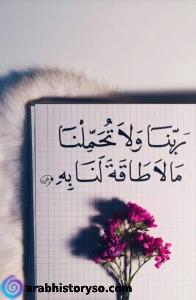 رَبَّنَا وَلَا تُحَمِّلْنَا
مَا لَا طَاقَةَ لَنَا بِهِ
arabhistoryso.com